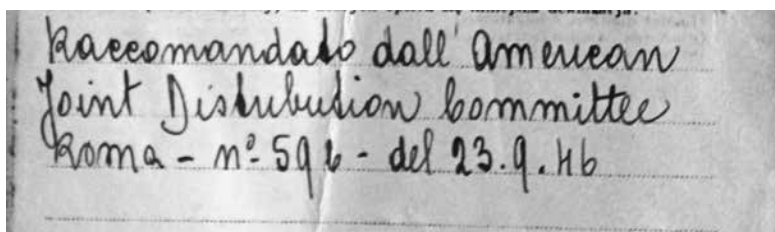 Raccomandato dall'American
Joint Distribution Committee
Roma - nº 596 - del 23.9.46